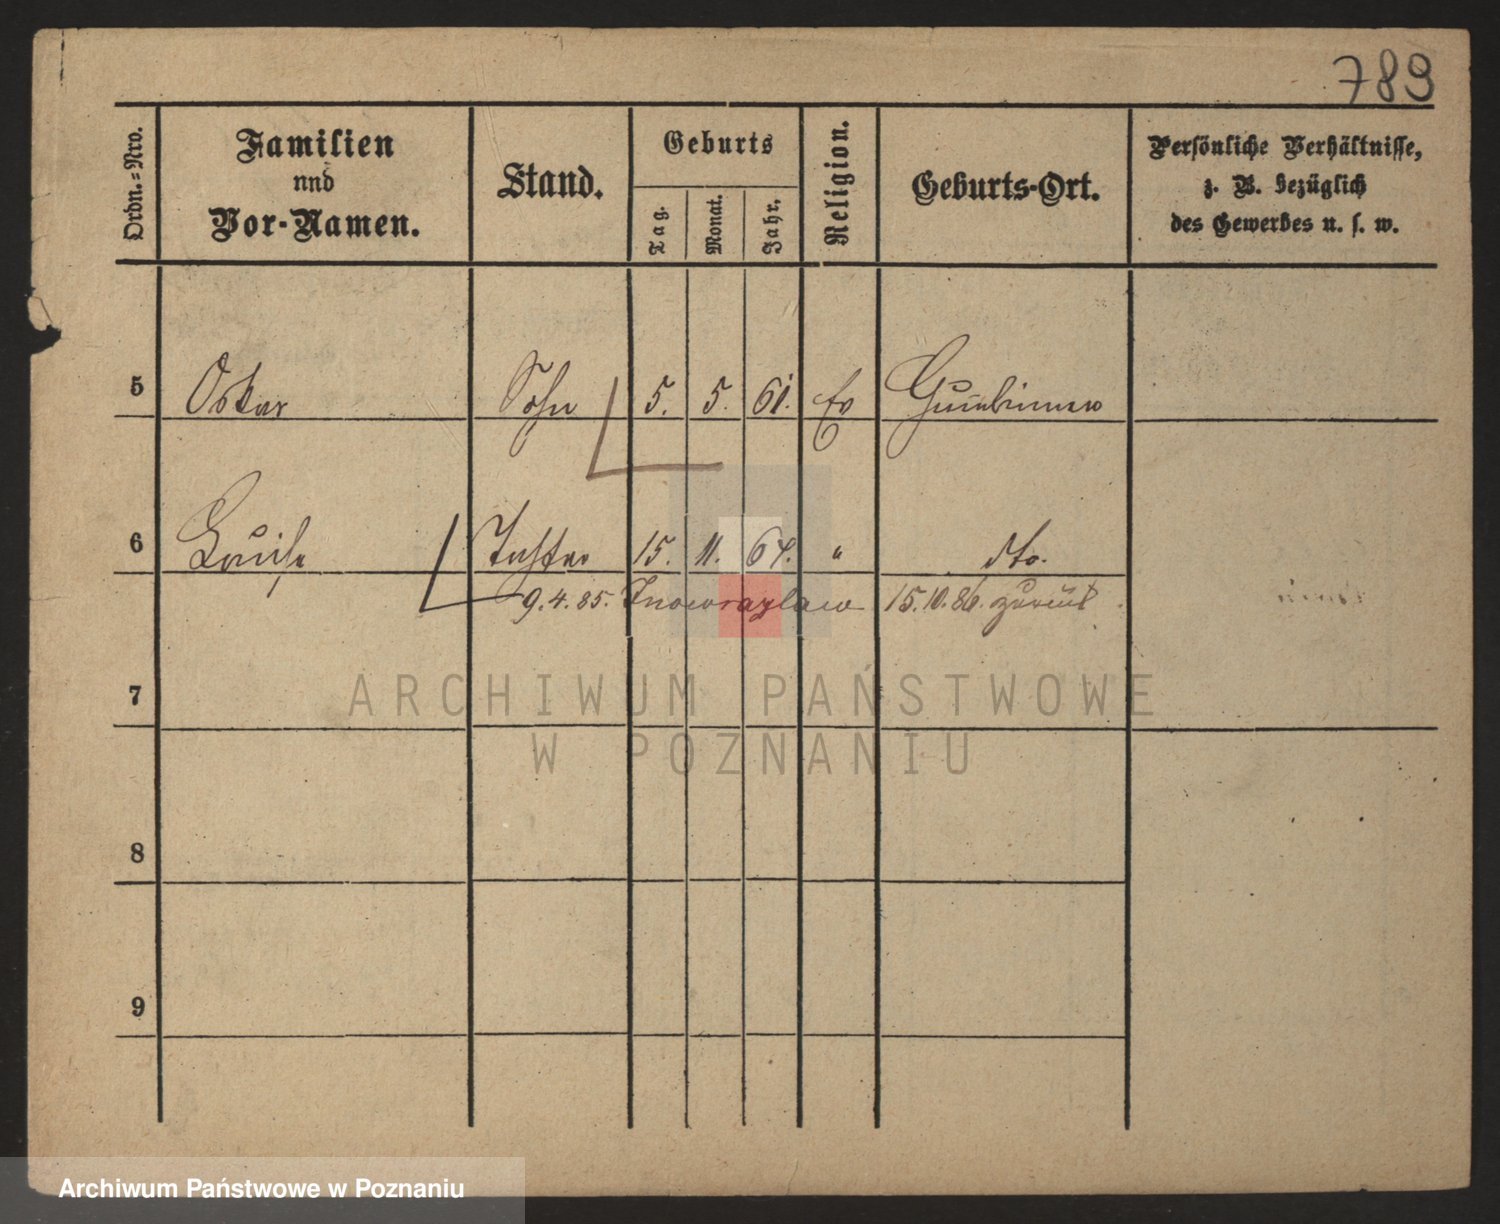 789
Ordn.=Nro.
Familien
und
Vor-Namen.
Stand.
Geburts
Tag.
Monat.
Jahr.
Religion.
Geburts-Ort.
Persönliche Verhältnisse,
z. B. bezüglich
des Gewerbes u. s. w.
5 Oskar Sohn 5. 5. 61. Ev Gumbinnen
6 Louise Tochter 15. 11. 64. " dto.
9.4.85. Inowrazlaw 15.10.86. zurück
7
8
9
ARCHIWUM PAŃSTWOWE
W POZNANIU
Archiwum Państwowe w Poznaniu